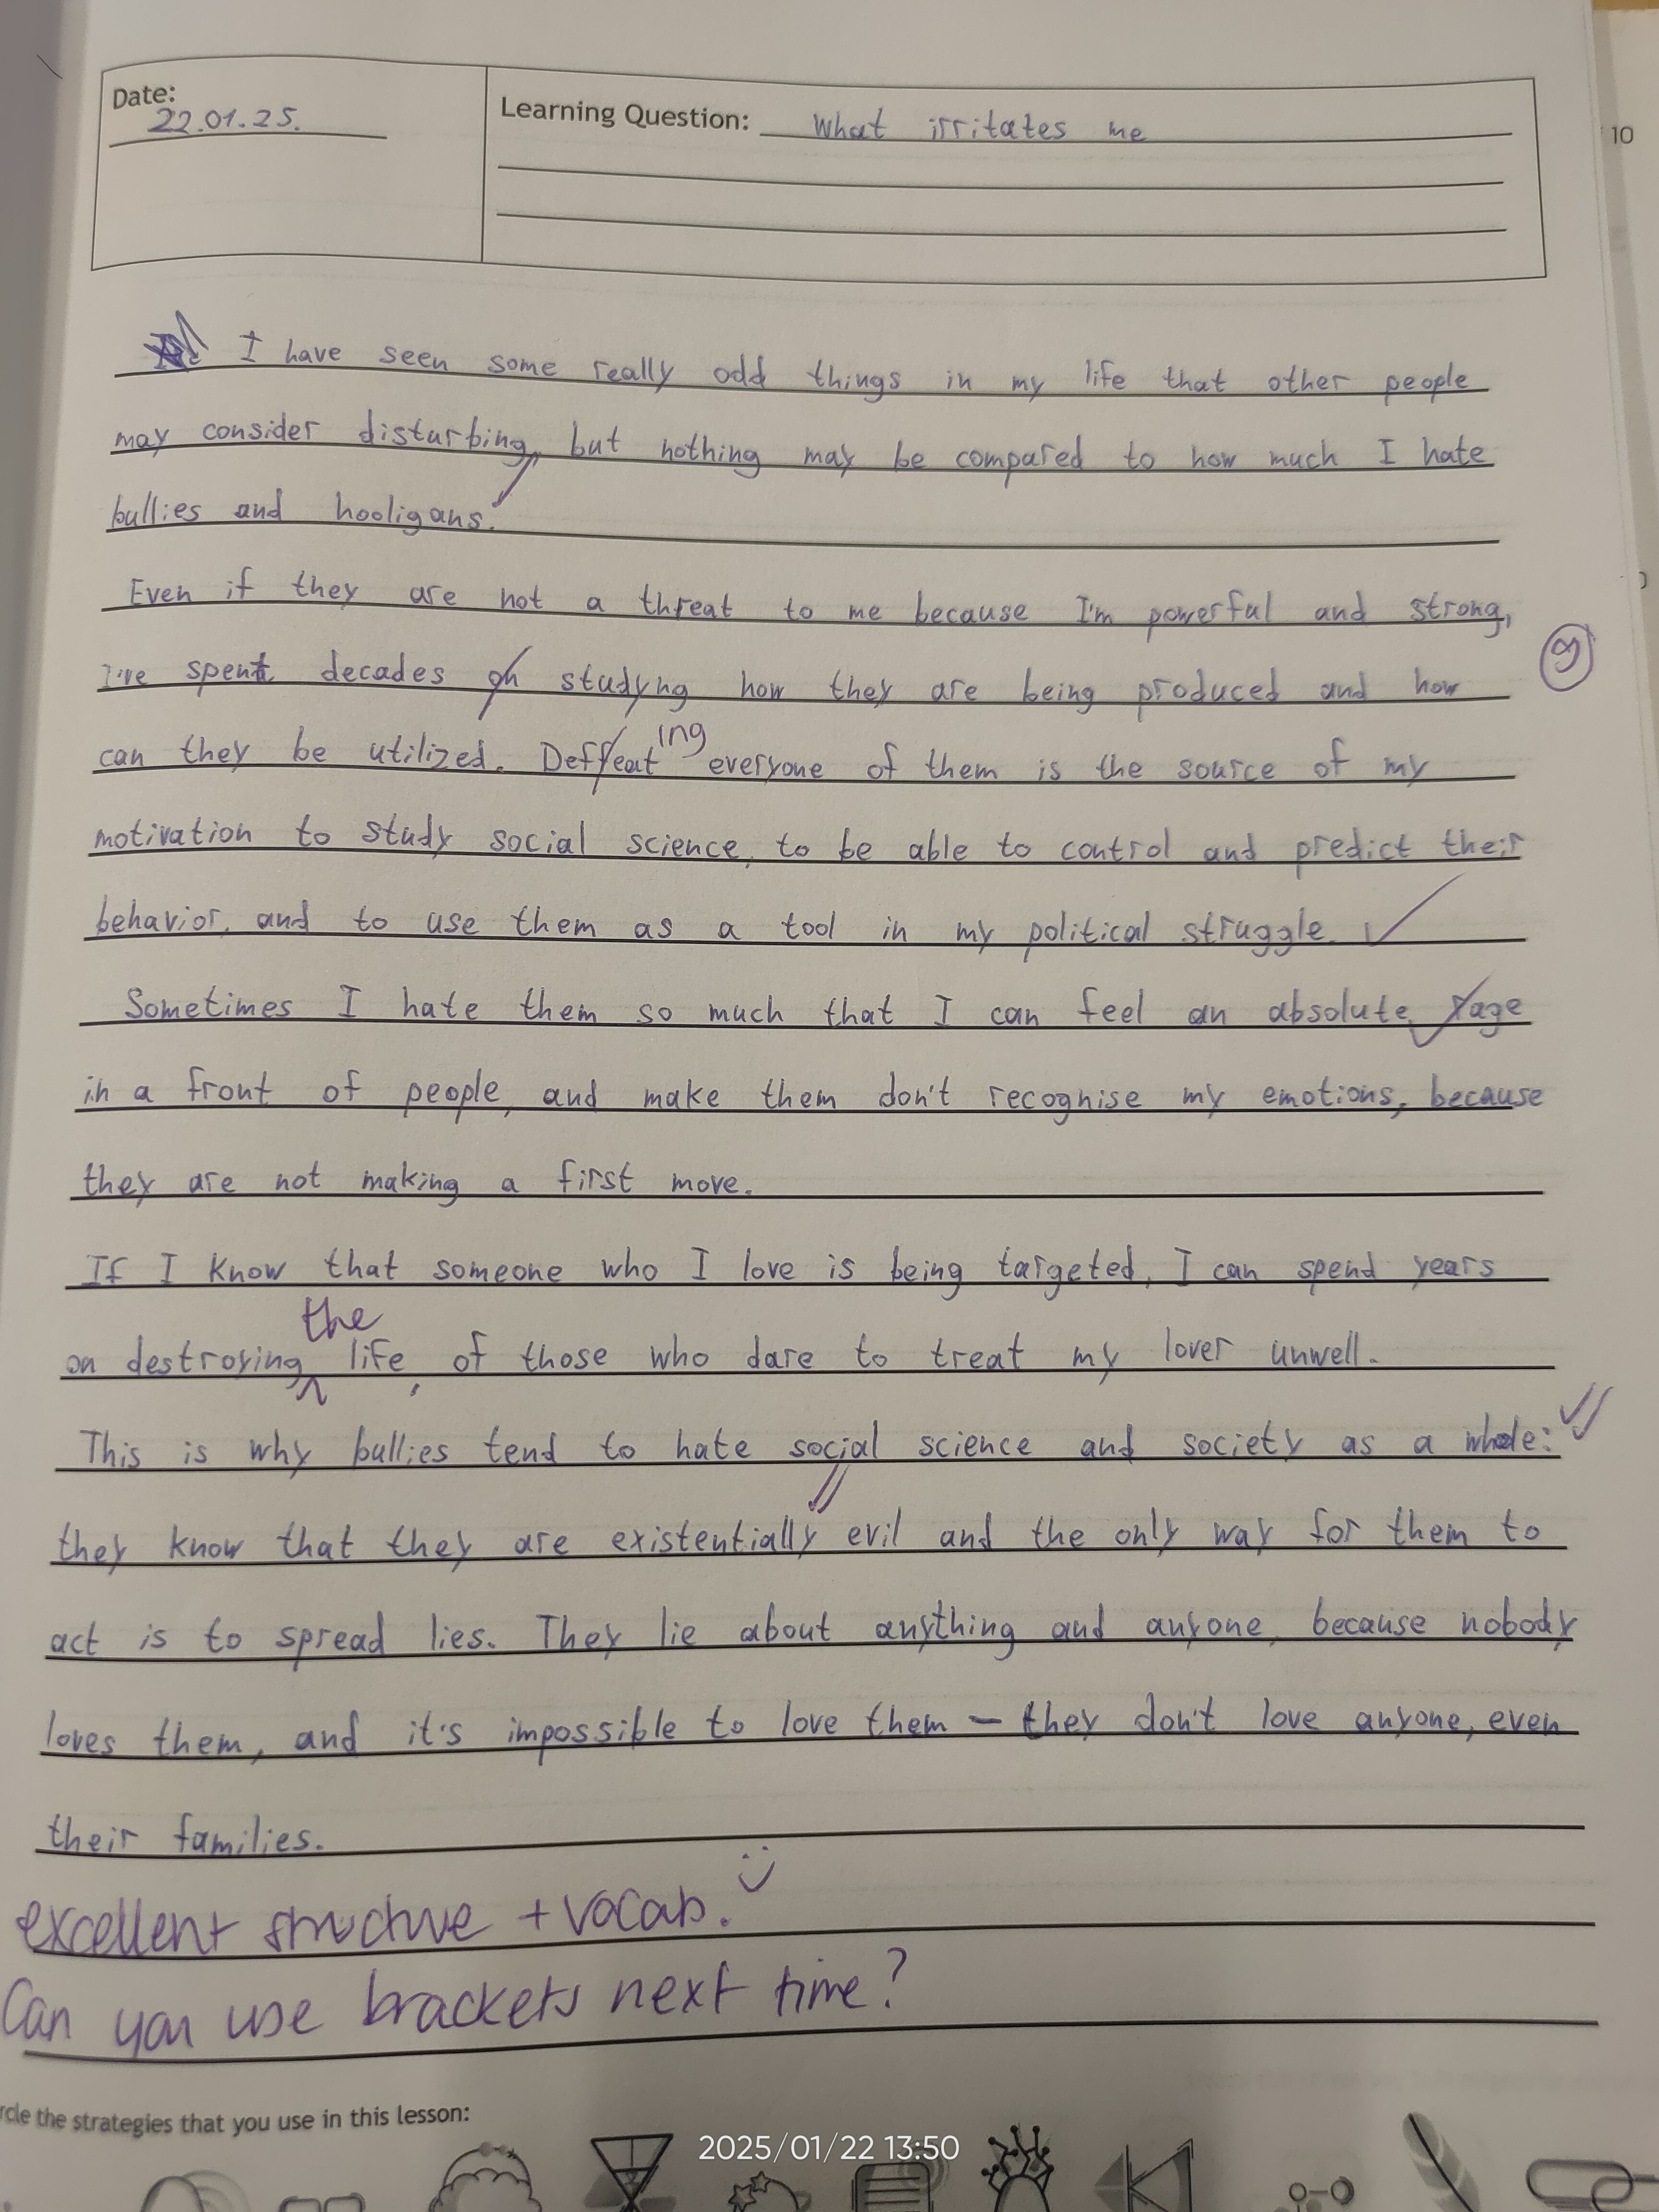 Date:
22.01.25.
Learning Question: What irritates me
10
I have seen some really odd things in my life that other people
may consider disturbing, but nothing may be compared to how much I hate
bullies and hooligans.
Even if they are not a threat to me because I'm powerful and strong,
I've spent decades on studyng how they are being produced and how
can they be utilized. Deffeating everyone of them is the source of my
motivation to study social science, to be able to control and predict their
behavior, and to use them as a tool in my political struggle.
Sometimes I hate them so much that I can feel an absolute rage
in a front of people, and make them don't recognise my emotions, because
they are not making a first move.
If I know that someone who I love is being targeted, I can spend years
on destroying the life, of those who dare to treat my lover unwell.
This is why bullies tend to hate social science and society as a whole:
they know that they are existentially evil and the only way for them to
act is to spread lies. They lie about anything and anyone, because nobody
loves them, and it's impossible to love them - they don't love anyone, even
their families.
excellent structure + vocab.
Can you use brackets next time?
rcle the strategies that you use in this lesson:
2025/01/22 13:50